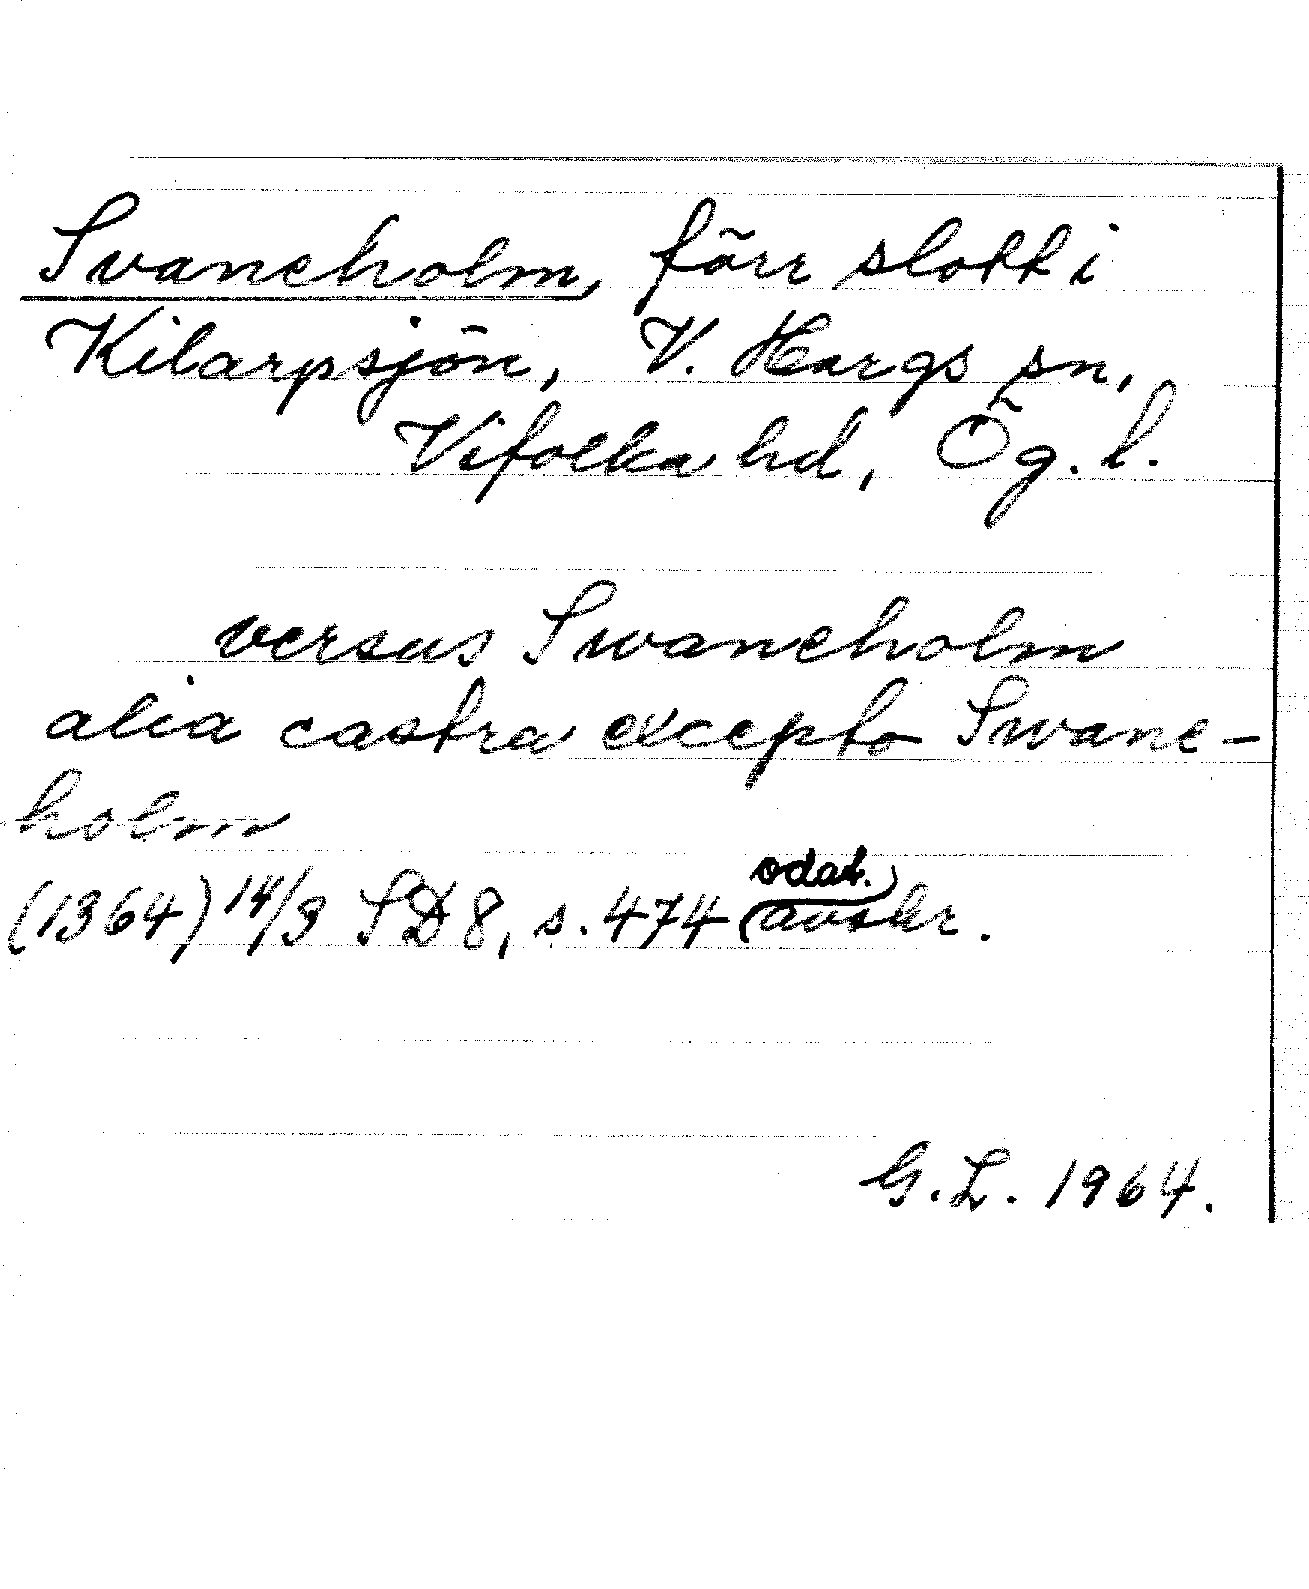 Svaneholm, förr slott i
Kilarpsjön, V. Hargs sn,
Vifolka hd, Ög. l.
versus Swaneholm
alia castra excepto Swane-
holm
(1364) 14/3 SD 8, s. 474 odat. avskr.
G. L. 1964.